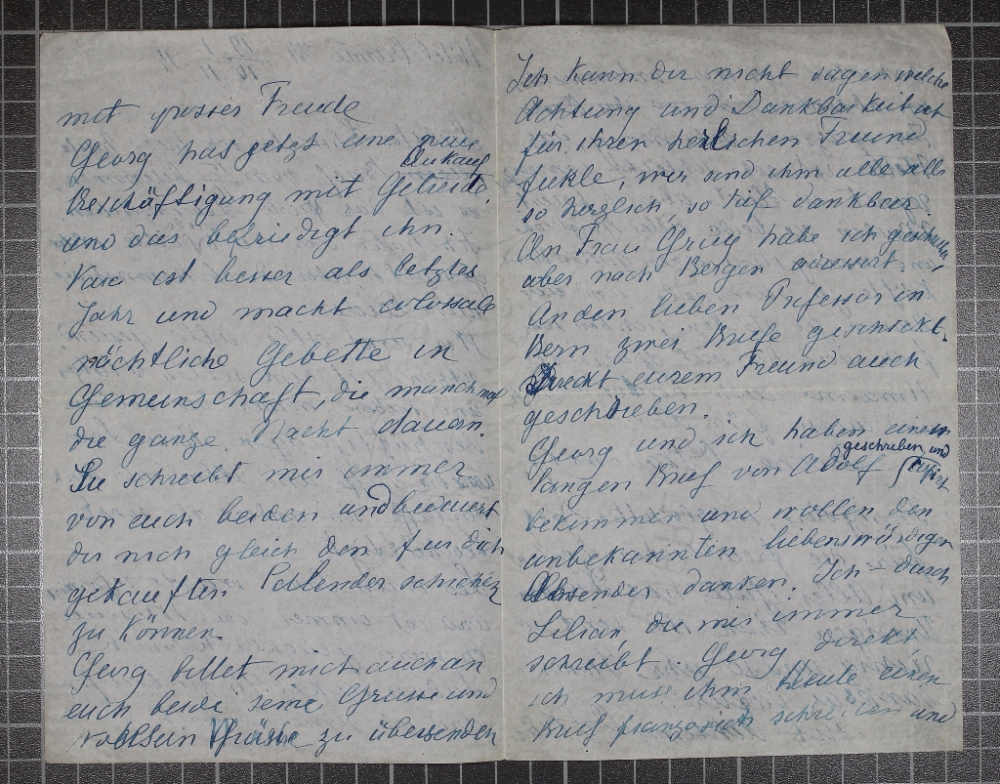 mit grosser Freude
Georg hat jetzt eine neue
Ankauf
Beschäftigung mit Getreide,
und das befriedigt ihn.
Vava ist besser als letztes
Jahr und macht colossale
nächtliche Gebette in
Gemeinschaft, die manchmal
die ganze Nacht dauern.
Sie schreibt mir immer
von euch beiden und
dir nich gleich den fur dich
gekauften schicken
zu können.
Georg bittet mich auch an
euch beide seine Grüsse und
zu übersenden
Ich kann dir nicht sagen welche
Achtung und Dankbarkeit ist
für ihren herlichen Freund
wir sind ihm alle alle
so herzlich, so tief dankbar.
An Frau Grieg habe ich geschrieben,
aber nach Bergen adressiert.
An den lieben Professor in
Bern zwei Briefe geschickt.
Direckt eurem Freund auch
geschrieben.
Georg und ich haben einen
geschrieben und
langen Brief von Adolf
bekommen und wollen den
unbekannten liebenswürdigen
Absender danken. Ich – durch
Lilian, die mir immer
schreibt. Georg direkt
ich muss ihm Heute einen
Brief französich schreiben und